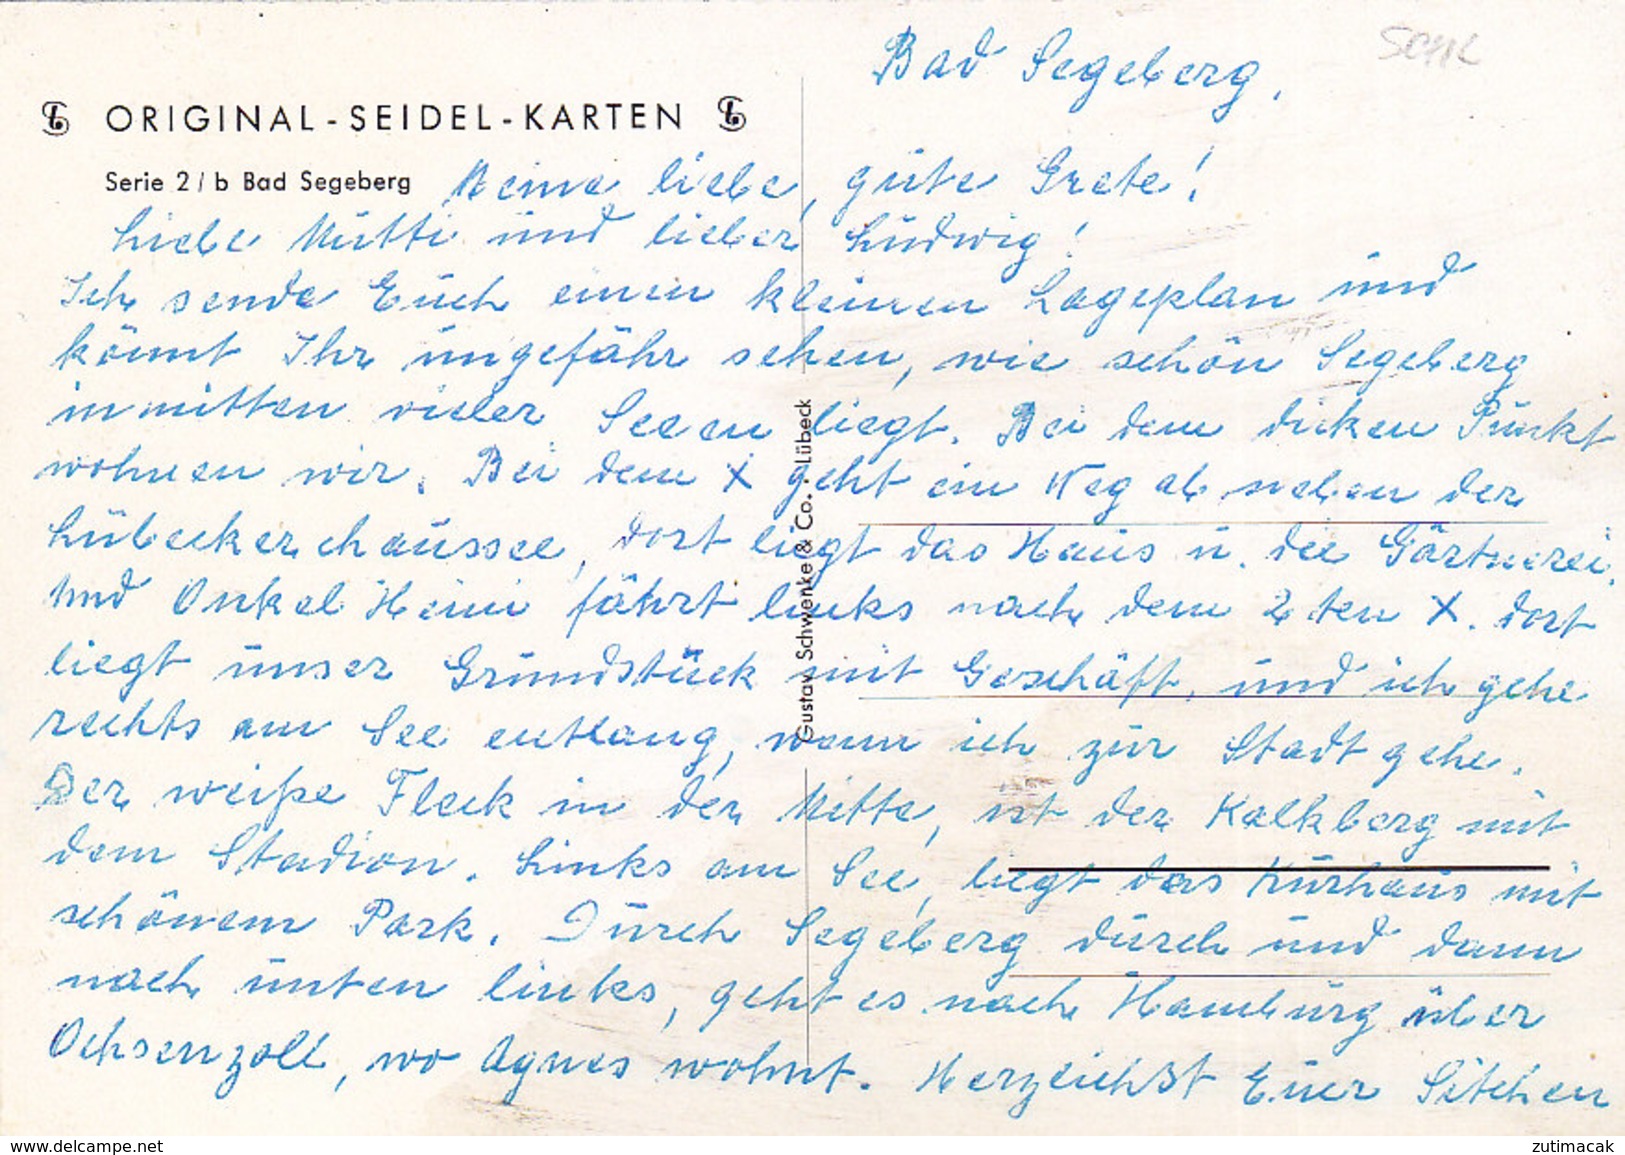 Bad Segeberg,
SCHL
ORIGINAL-SEIDEL-KARTEN
Serie 2/b Bad Segeberg
Meine liebe, gute Grete!
Liebe Mutti und lieber Ludwig!
Ich sende Euch einen kleinen Lageplan und
könnt Ihr ungefähr sehen, wie schön Segeberg
inmitten vieler Seen liegt. Bei dem dicken Punkt
wohnen wir. Bei dem X geht ein Weg ab neben der
Lübeckerchaussee, dort liegt das Haus u. die Gärtnerei.
Und Onkel Heini fährt links nach dem 2ten X. dort
liegt unser Grundstück mit Geschäft, und ich gehe
rechts am See entlang, wenn ich zur Stadt gehe.
Der weiße Fleck in der Mitte, ist der Kalkberg mit
dem Stadion. Links am See, liegt das Kurhaus mit
schönem Park. Durch Segeberg durch und dann
nach unten links, geht es nach Hamburg über
Ochsenzoll, wo Agnes wohnt. Herzlichst Euer Sitchen
Gustav Schwenke & Co. · Lübeck
delcampe.net
zutimacak